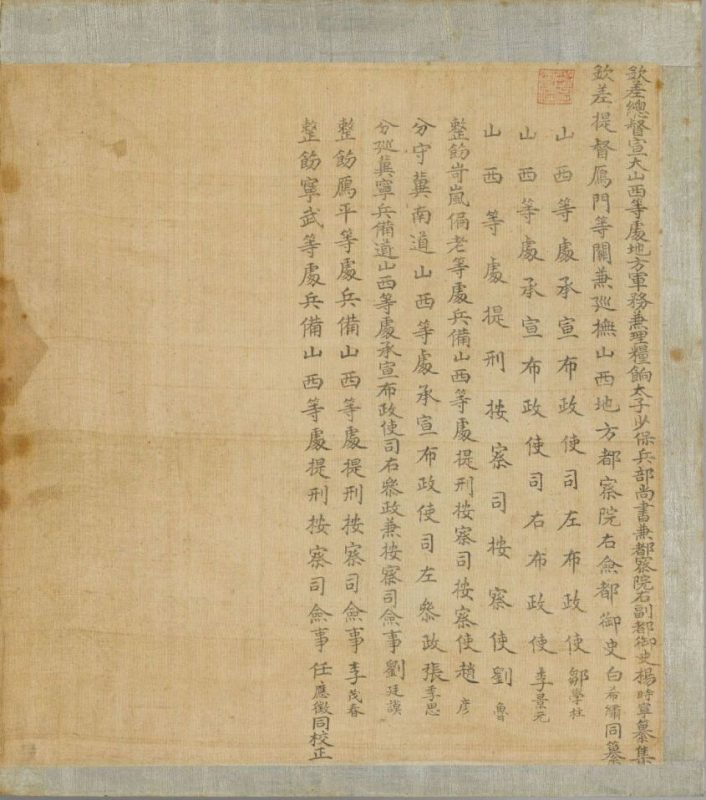 欽差總督宣大山西等處地方軍務兼理糧餉太子少保兵部尚書兼都察院右副都御史楊時寧纂集
欽差提督鴈門等關兼廵撫山西地方都察院右僉都御史白希繡同纂
山西等處承宣布政使司左布政使鄒學柱
山西等處承宣布政使司右布政使李景元
山西等處提刑按察司按察使劉魯
整飭岢嵐偏老等處兵備山西等處提刑按察司按察使趙彥
分守冀南道山西等處承宣布政使司左叅政張季思
分廵冀寧兵備道山西等處承宣布政使司右叅政兼按察司僉事劉廷謨
整飭鴈平等處兵備山西等處提刑按察司僉事李茂春
整飭寧武等處兵備山西等處提刑按察司僉事任應徵同校正